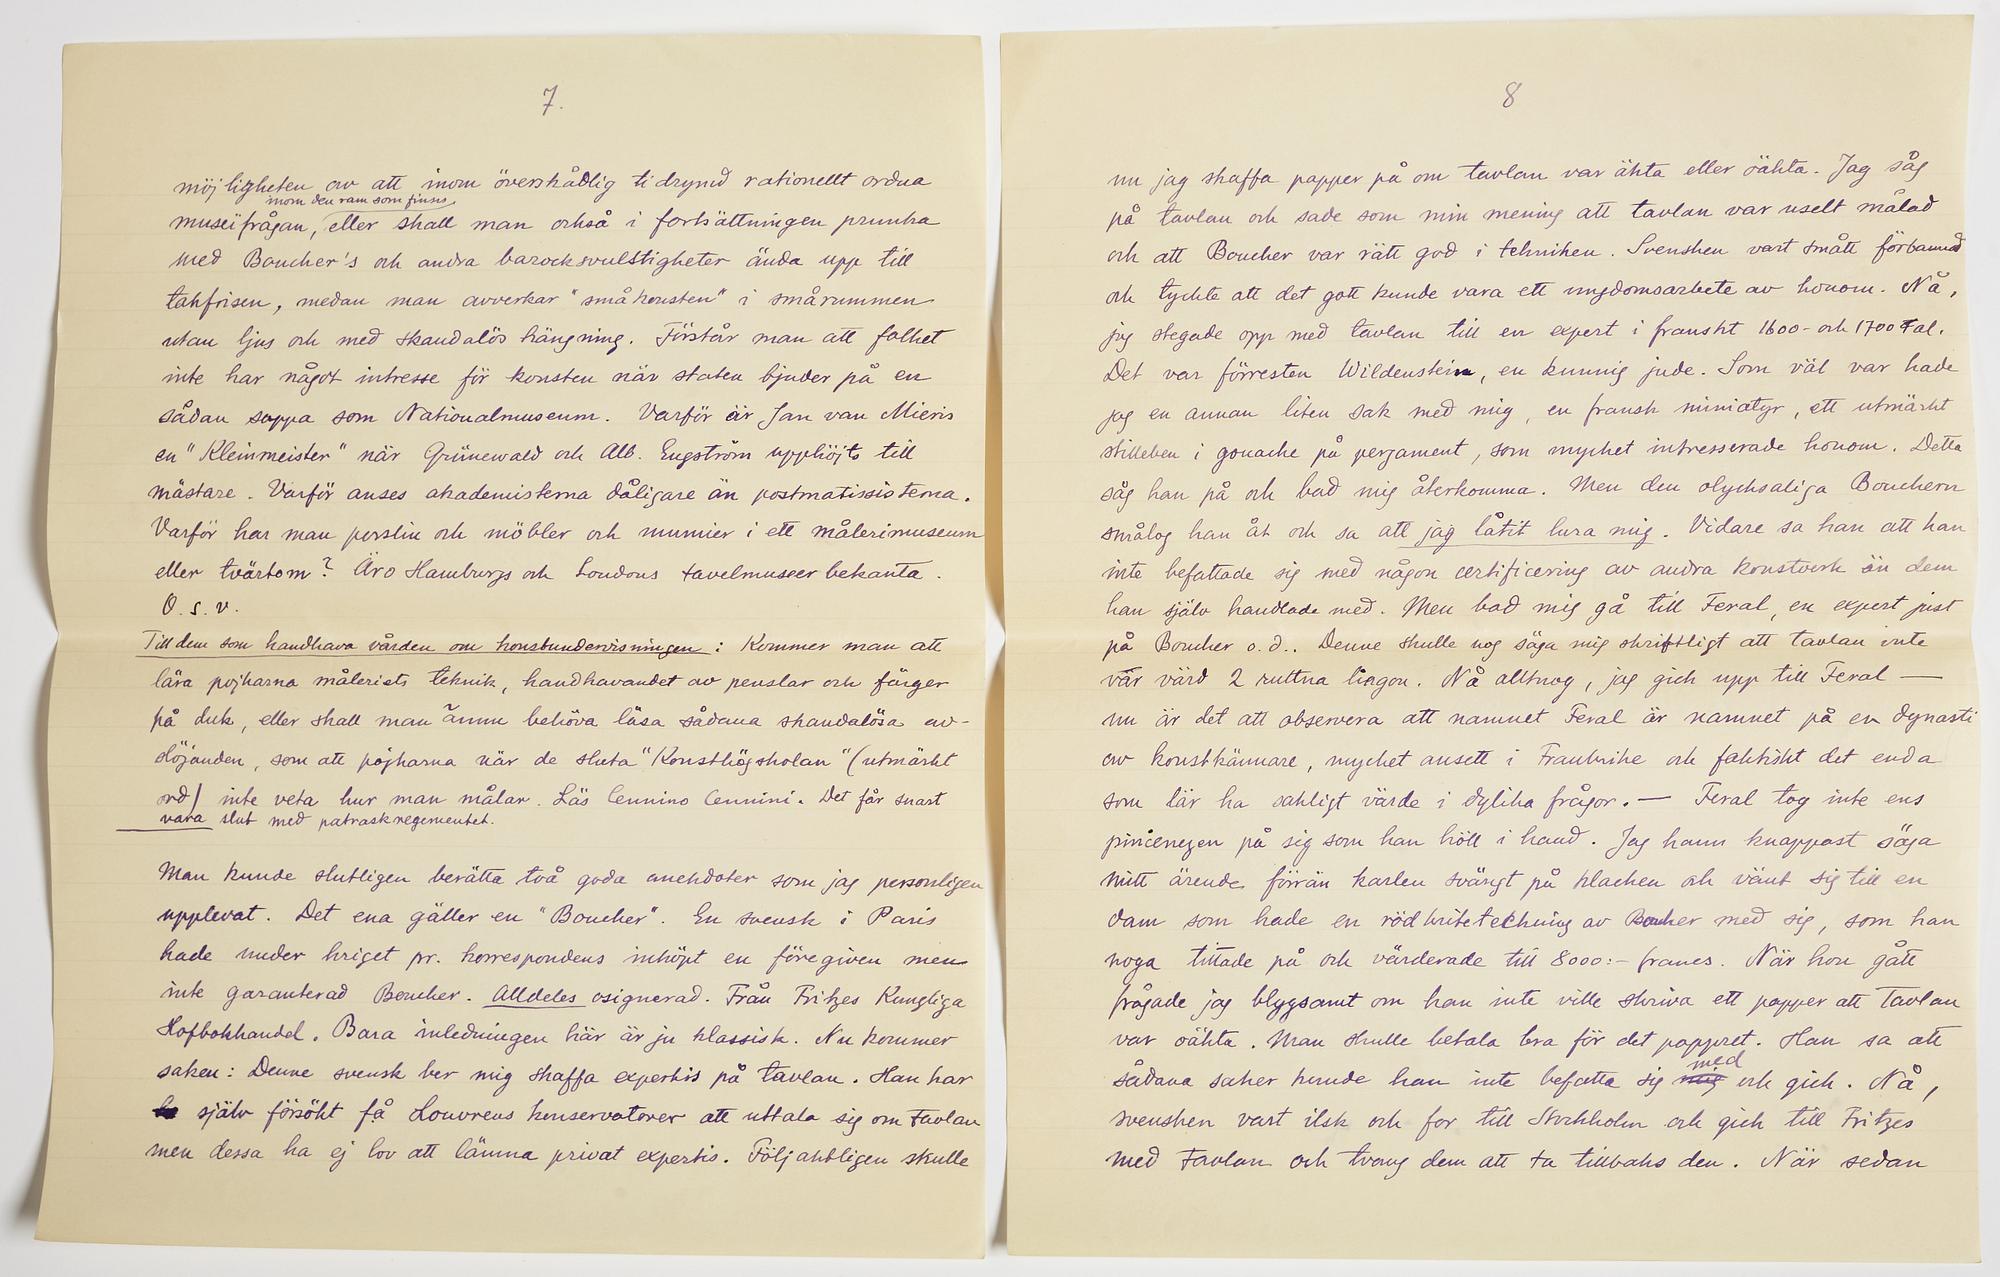 7.
möjligheten av att inom överskådlig tidrymd rationellt ordna
inom den ram som finnes
museifrågan, eller skall man också i fortsättningen prunka
med Boucher's och andra barocksvulstigheter ända upp till
takfrisen, medan man avverkar "småkonsten" i smårummen
utan ljus och med skandalös hängning. Förstår man att folket
inte har något intresse för konsten när staten bjuder på en
sådan soppa som Nationalmuseum. Varför är Jan van Mieris
en "Kleinmeister" när Grünewald och Alb. Engström upphöjts till
mästare. Varför anses akademisterna dåligare än postmatissisterna.
Varför har man porslin och möbler och mumier i ett målerimuseum
eller tvärtom? Äro Hamburgs och Londons tavelmuseer bekanta.
O.s.v.
Till dem som handhava vården om konstundervisningen: Kommer man att
lära pojkarna måleriets teknik, handhavandet av penslar och färger
på duk, eller skall man ännu behöva läsa sådana skandalösa av-
slöjanden, som att pojkarna när de sluta "Konsthögskolan" (utmärkt
ord) inte veta hur man målar. Läs Cennino Cennini. Det får snart
vara slut med patraskregementet.
Man kunde slutligen berätta två goda anekdoter som jag personligen
upplevat. Det ena gäller en "Boucher". En svensk i Paris
hade under kriget pr. korrespondens inköpt en föregiven men
inte garanterad Boucher. Alldeles osignerad. Från Fritzes Kungliga
Hofbokhandel. Bara inledningen här är ju klassisk. Nu kommer
saken: Denne svensk ber mig skaffa expertis på tavlan. Han har
själv försökt få Louvrens konservatorer att uttala sig om tavlan
men dessa ha ej lov att lämna privat expertis. Följaktligen skulle
8
nu jag skaffa papper på om tavlan var äkta eller oäkta. Jag såg
på tavlan och sade som min mening att tavlan var uselt målad
och att Boucher var rätt god i tekniken. Svensken vart smått förbannad
och tyckte att det gott kunde vara ett ungdomsarbete av honom. Nå,
jag stegade opp med tavlan till en expert i franskt 1600- och 1700 tal.
Det var förresten Wildenstein, en kunnig jude. Som väl var hade
jag en annan liten sak med mig, en fransk miniatyr, ett utmärkt
stilleben i gouache på pergament, som mycket intresserade honom. Detta
såg han på och bad mig återkomma. Men den olycksaliga Bouchern
smålog han åt och sa att jag låtit lura mig. Vidare sa han att han
inte befattade sig med någon certificering av andra konstverk än dem
han själv handlade med. Men bad mig gå till Feral, en expert just
på Boucher o.d.. Denne skulle nog säga mig skriftligt att tavlan inte
var värd 2 ruttna lingon. Nå alltnog, jag gick upp till Feral —
nu är det att observera att namnet Feral är namnet på en dynasti
av konstkännare, mycket ansett i Frankrike och faktiskt det enda
som lär ha sakligt värde i dylika frågor. — Feral tog inte ens
pincenezen på sig som han höll i hand. Jag hann knappast säga
mitt ärende förrän karlen svängt på klacken och vänt sig till en
dam som hade en rödkriteteckning av Boucher med sig, som han
noga tittade på och värderade till 8000:- francs. När hon gått
frågade jag blygsamt om han inte ville skriva ett papper att tavlan
var oäkta. Man skulle betala bra för det pappret. Han sa att
med
sådana saker kunde han inte befatta sig och gick. Nå,
svensken vart ilsk och for till Stockholm och gick till Fritzes
med tavlan och tvang dem att ta tillbaks den. När sedan